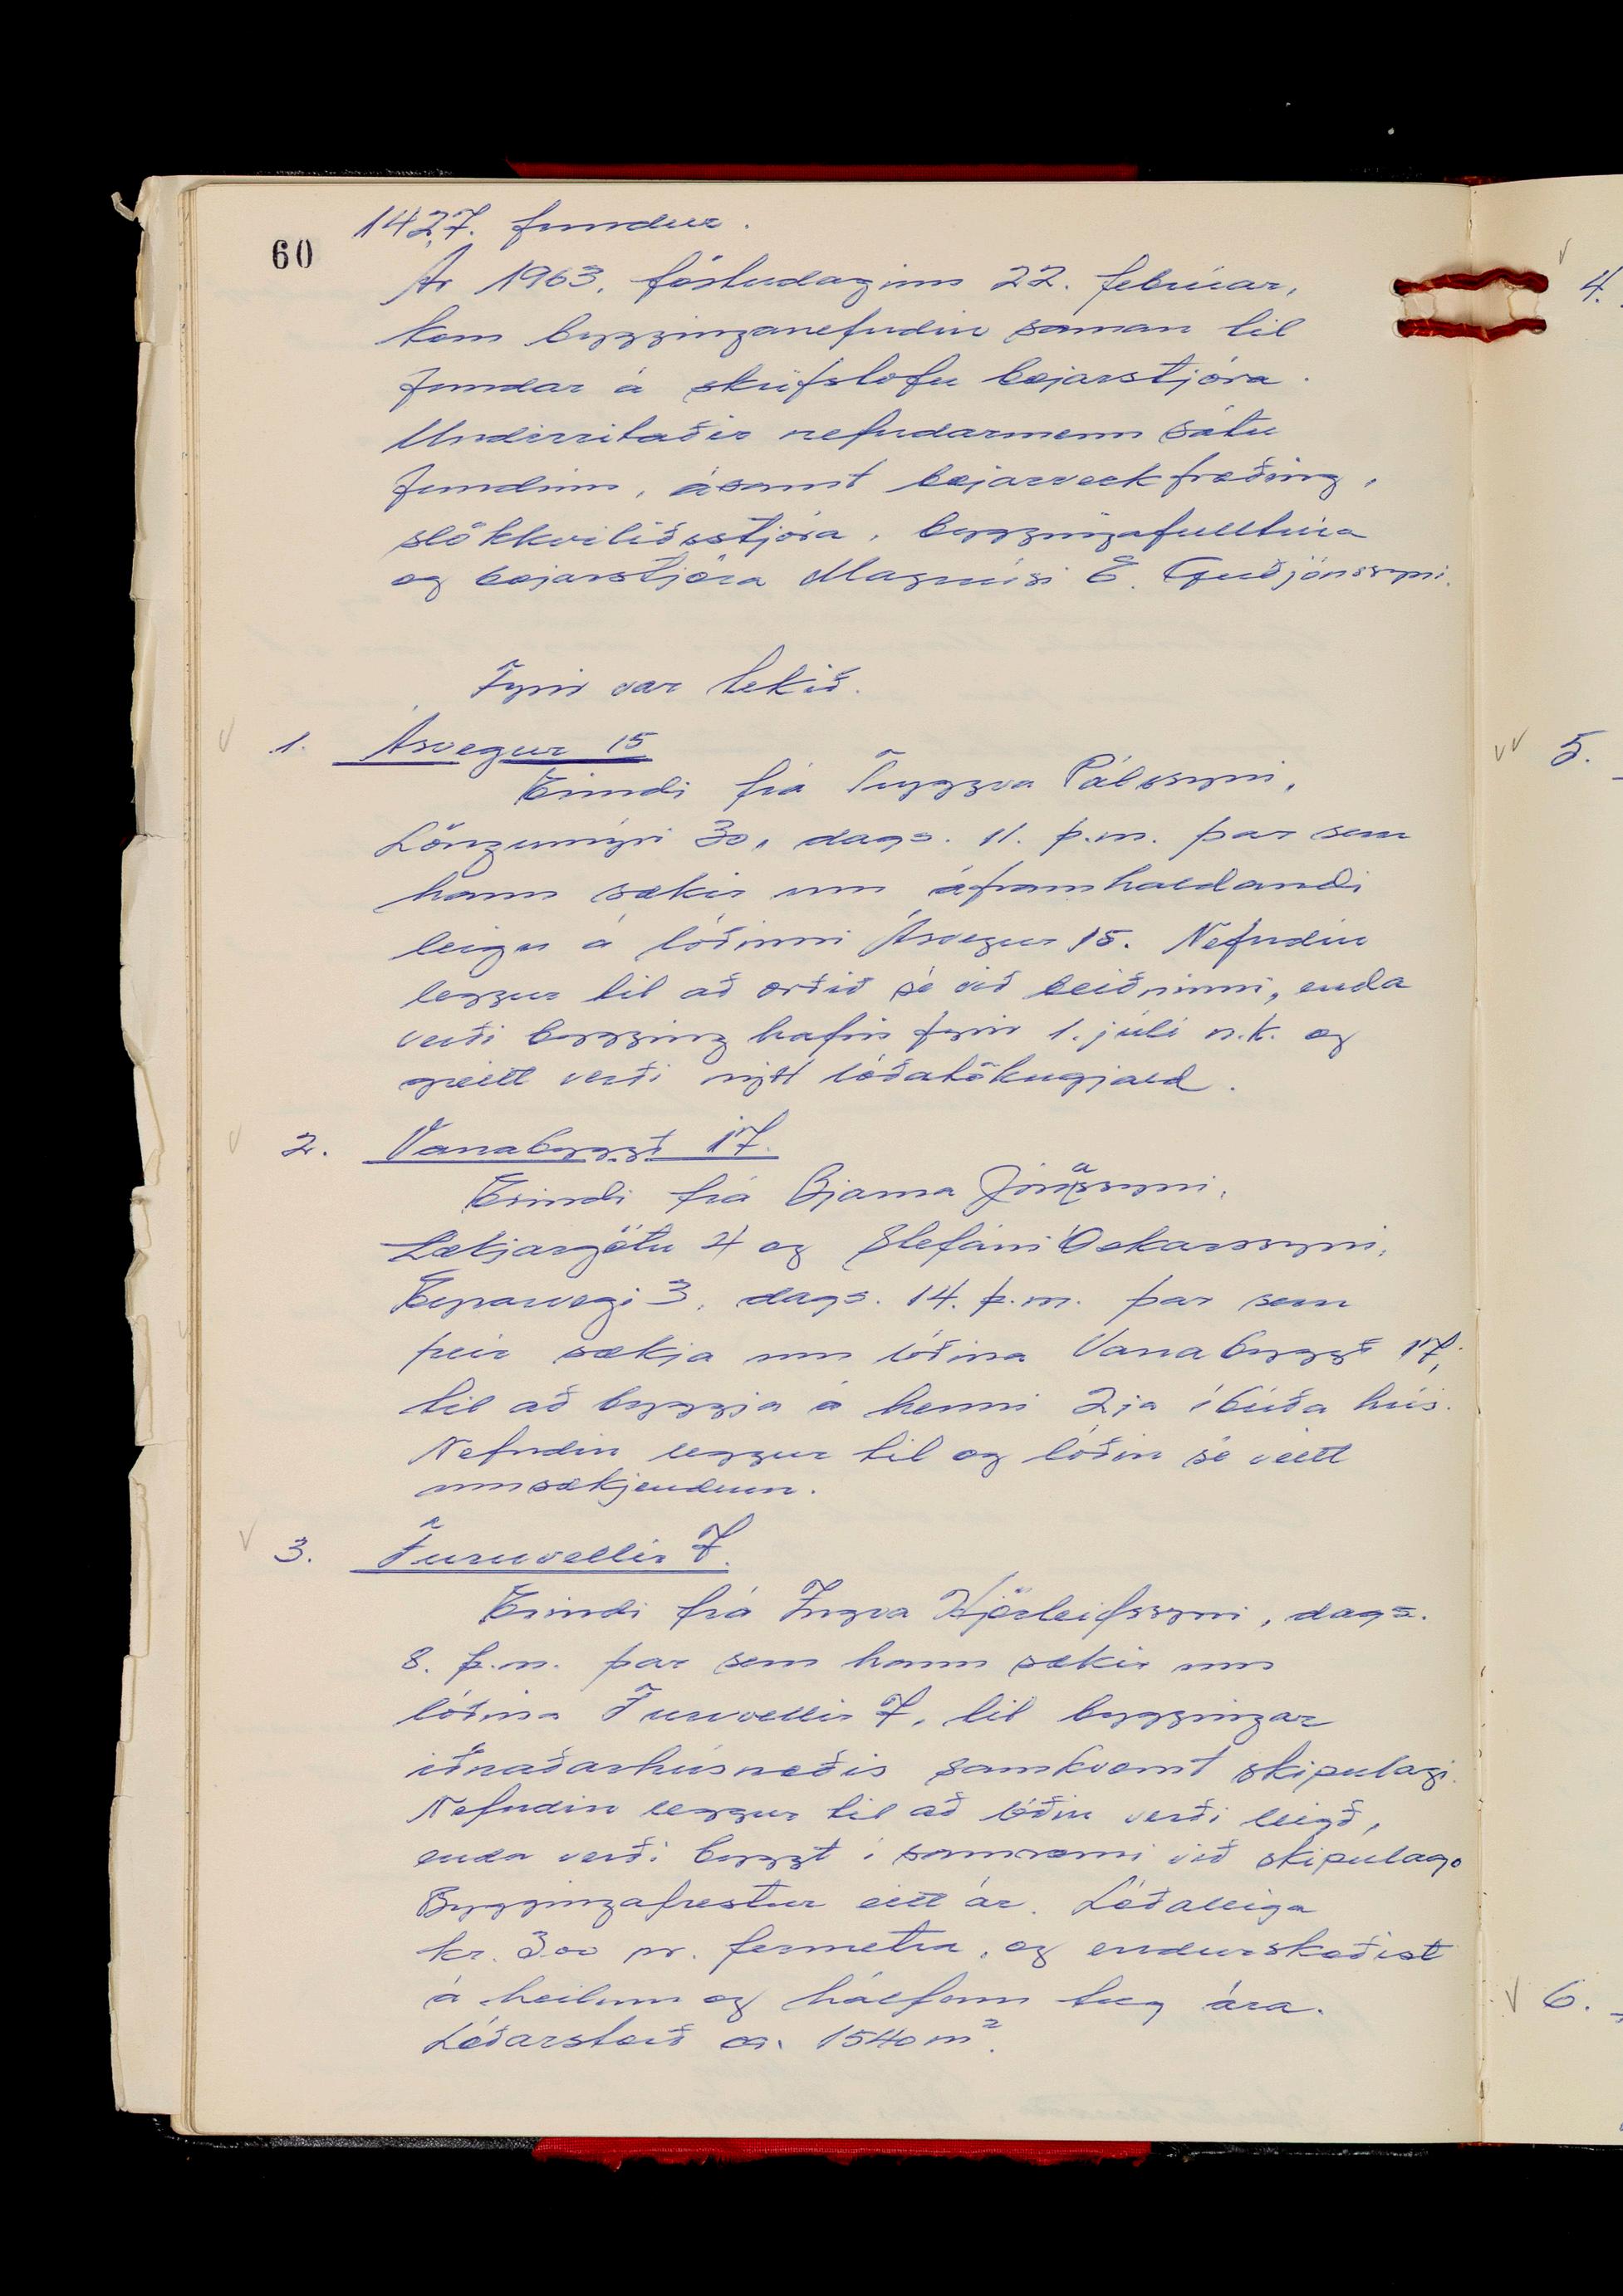 60
1427. fundur.
Ár 1963, föstudaginn 22. febrúar,
kom bygginganefndin saman til
fundar á skrifstofu bæjarstjóra.
Undirritaðir nefndarmenn sátu
fundinn, ásamt bæjarverkfræðing,
slökkviliðsstjóra, byggingafulltrúa
og bæjarstjóra Magnúsi E. Guðjónssyni.
Fyrir var tekið.
1. Ásvegur 15
Erindi frá Tryggva Pálssyni,
Löngumýri 30, dags. 11. þ.m. þar sem
hann sækir um áframhaldandi
leigu á lóðinni Ásvegur 15. Nefndin
leggur til að orðið sé við beiðninni, enda
verði bygging hafin fyrir 1. júlí n.k. og
greitt verði nýtt lóðatökugjald.
2. Vanabyggð 17.
Erindi frá Bjarna Jónassyni,
Lækjargötu 4 og Stefáni Óskarssyni,
Eyrarvegi 3, dags. 14. þ.m. þar sem
þeir sækja um lóðina Vanabyggð 17,
til að byggja á henni 2ja íbúða hús.
Nefndin leggur til og lóðin sé veitt
umsækjendum.
3. Furuvellir 7.
Erindi frá Yngva Hjörleifssyni, dags.
8. þ.m. þar sem hann sækir um
lóðina Furuvellir 7, til byggingar
iðnaðarhúsnæðis samkvæmt skipulagi.
Nefndin leggur til að lóðin verði leigð,
enda verði byggt í samræmi við skipulag.
Byggingafrestur eitt ár. Lóðaleiga
kr. 3.00 pr. fermetra, og endurskoðist
á heilum og hálfum tug ára.
Lóðarstærð ca. 1540 m².
4.
5.
6.